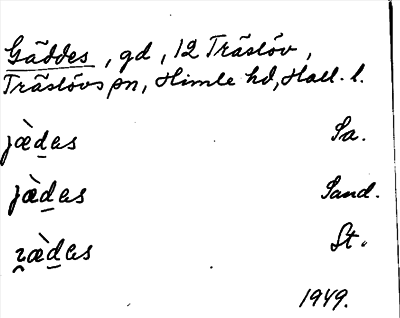 Gäddes, gd, 12 Träslöv,
Träslövs sn, Himle hd, Hall. l.
jæ̀d̲as Sa.
jæ̀d̲as Sand.
ɿæ̀d̲as St.
1949.